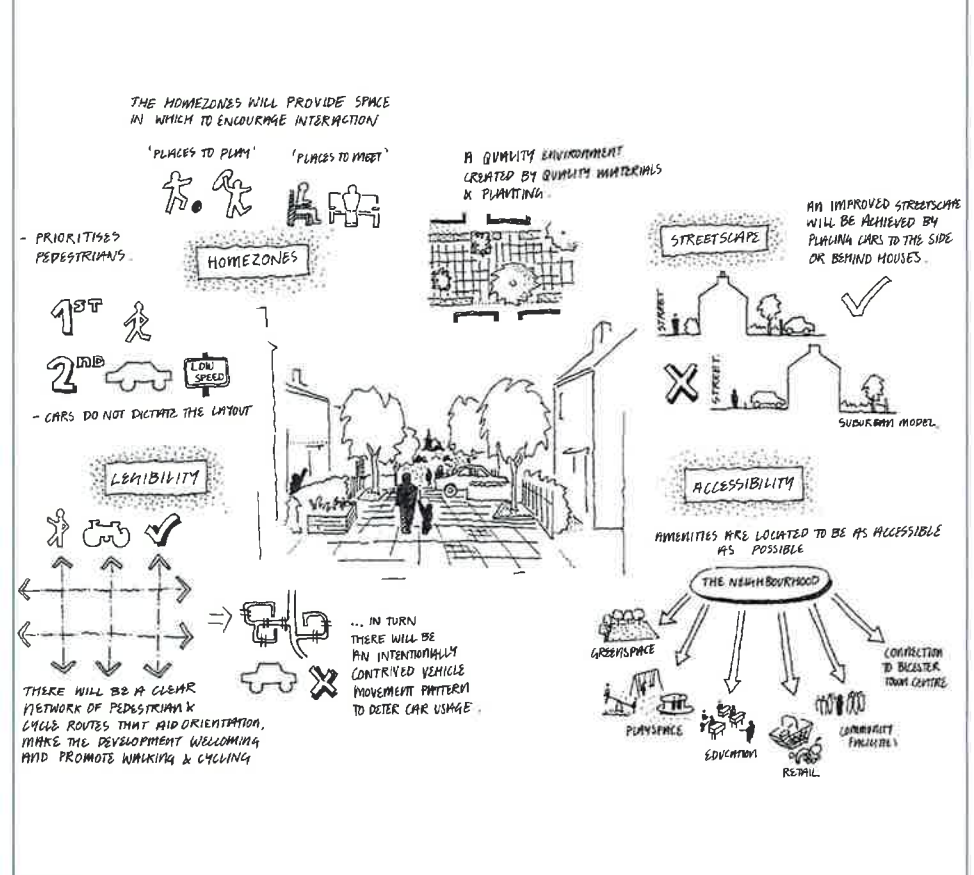 THE HOMEZONES WILL PROVIDE SPACE
IN WHICH TO ENCOURAGE INTERACTION
'PLACES TO PLAY'
'PLACES TO MEET'
- PRIORITISES
PEDESTRIANS.
HOMEZONES
1ST
2ND
LOW
SPEED
- CARS DO NOT DICTATE THE LAYOUT
A QUALITY ENVIRONMENT
CREATED BY QUALITY MATERIALS
& PLANTING.
STREETSCAPE
AN IMPROVED STREETSCAPE
WILL BE ACHIEVED BY
PLACING CARS TO THE SIDE
OR BEHIND HOUSES.
STREET
STREET
SUBURBAN MODEL.
LEGIBILITY
THERE WILL BE A CLEAR
NETWORK OF PEDESTRIAN &
CYCLE ROUTES THAT AID ORIENTATION,
MAKE THE DEVELOPMENT WELCOMING
AND PROMOTE WALKING & CYCLING
... IN TURN
THERE WILL BE
AN INTENTIONALLY
CONTRIVED VEHICLE
MOVEMENT PATTERN
TO DETER CAR USAGE.
ACCESSIBILITY
AMENITIES ARE LOCATED TO BE AS ACCESSIBLE
AS POSSIBLE
THE NEIGHBOURHOOD
GREENSPACE
PLAYSPACE
EDUCATION
RETAIL
COMMUNITY
FACILITIES
CONNECTION
TO BICESTER
TOWN CENTRE